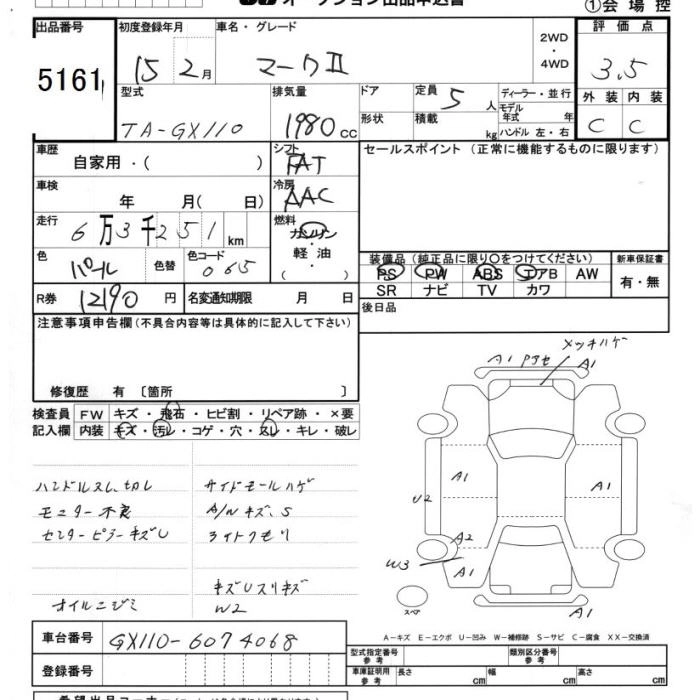 オークション出品申込書
①会場控
出品番号 5161
初度登録年月 15 2月
車名・グレード マークⅡ
2WD
・
4WD
評価点 3.5
外装 内装
C C
型式 TA-GX110
排気量 1980 cc
ドア
形状
定員 5 人
積載 kg
ディーラー・並行
モデル年式 年
ハンドル 左・右
車歴 自家用・( )
シフト FAT
セールスポイント(正常に機能するものに限ります)
車検 年 月( 日)
冷房 AAC
走行 6万3千251km
燃料 ガソリン・軽油・( )
色 パール
色替
色コード 065
装備品(純正品に限り○をつけてください)
PS PW ABS エアB AW
SR ナビ TV カワ
新車保証書
有・無
R券 12190 円
名変通知期限 月 日
後日品
注意事項申告欄(不具合内容等は具体的に記入して下さい)
修復歴 有〔箇所 〕
検査員記入欄
FW キズ・飛石・ヒビ割・リペア跡・×要
内装 キズ・汚レ・コゲ・穴・スレ・キレ・破レ
ハンドルスレ、切レ
モニター不良
センターピラーキズU
オイルニジミ
サイドモールハゲ
A/Nキズ、S
ライトクモリ
キズUスリキズ
W2
メッキハゲ
A1 アセ A1
A1
A1
U2
A2
W3
A1
A1
スペア
A-キズ E-エクボ U-凹み W-補修跡 S-サビ C-腐食 XX-交換済
車台番号 GX110-6074068
登録番号
型式指定番号 参考
類別区分番号 参考
車庫証明用 参考
長さ cm
幅 cm
高さ cm
希望出品コーナー